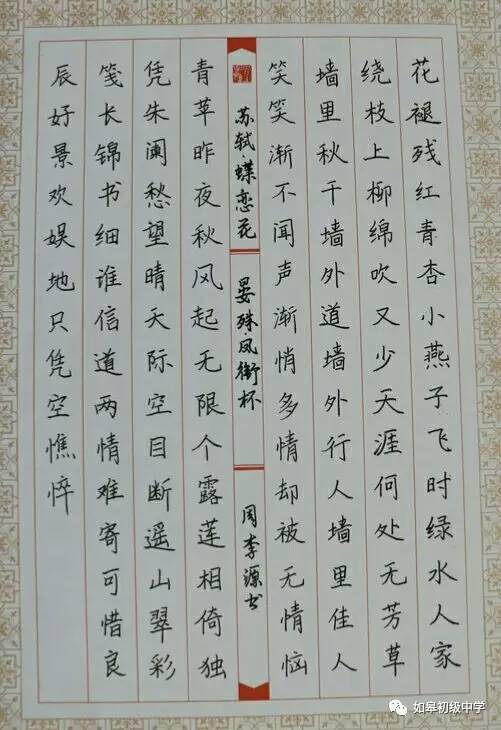 花褪残红青杏小燕子飞时绿水人家
绕枝上柳绵吹又少天涯何处无芳草
墙里秋千墙外道墙外行人墙里佳人
笑笑渐不闻声渐悄多情却被无情恼
苏轼·蝶恋花
晏殊·凤衔杯
周李源书
青苹昨夜秋风起无限个露莲相倚独
凭朱阑愁望晴天际空目断遥山翠彩
笺长锦书细谁信道两情难寄可惜良
辰好景欢娱地只凭空憔悴
如皋初级中学